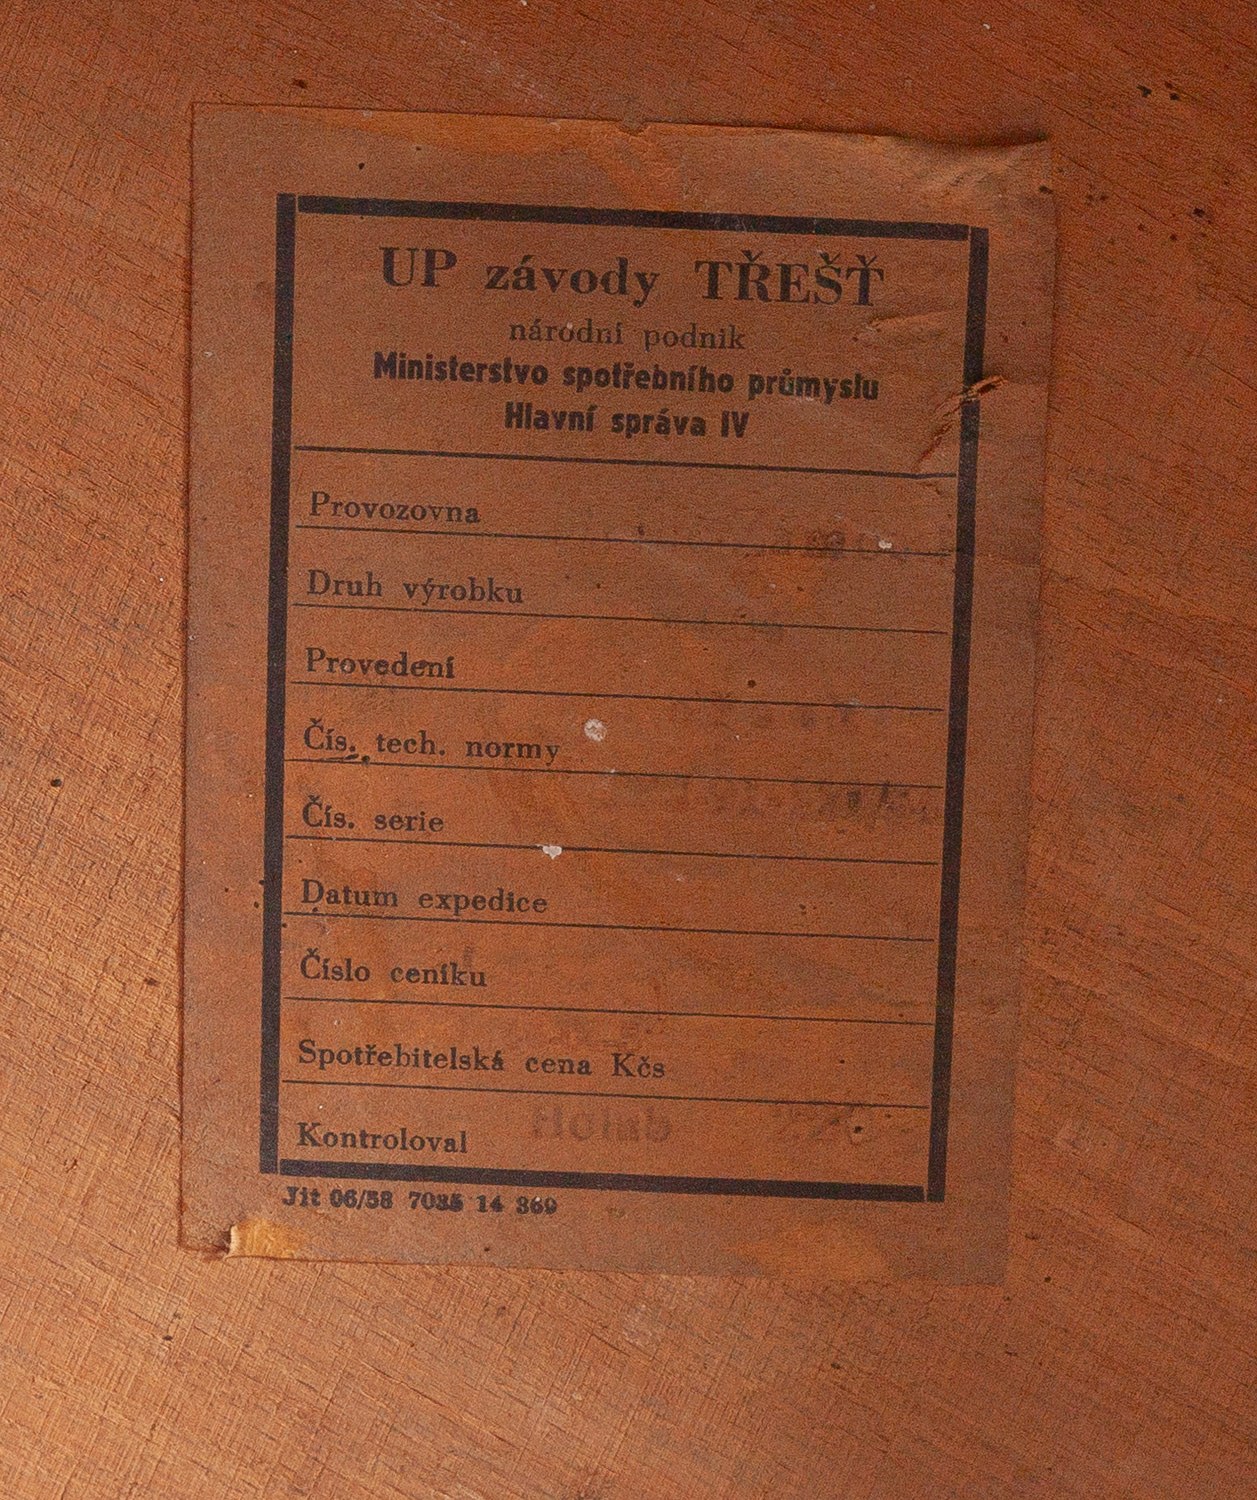 UP závody TŘEŠŤ
národní podnik
Ministerstvo spotřebního průmyslu
Hlavní správa IV
Provozovna
Druh výrobku
Provedení
Čís. tech. normy
Čís. serie
Datum expedice
Číslo ceníku
Spotřebitelská cena Kčs
Kontroloval Holub
Jit 06/58 7035 14 369